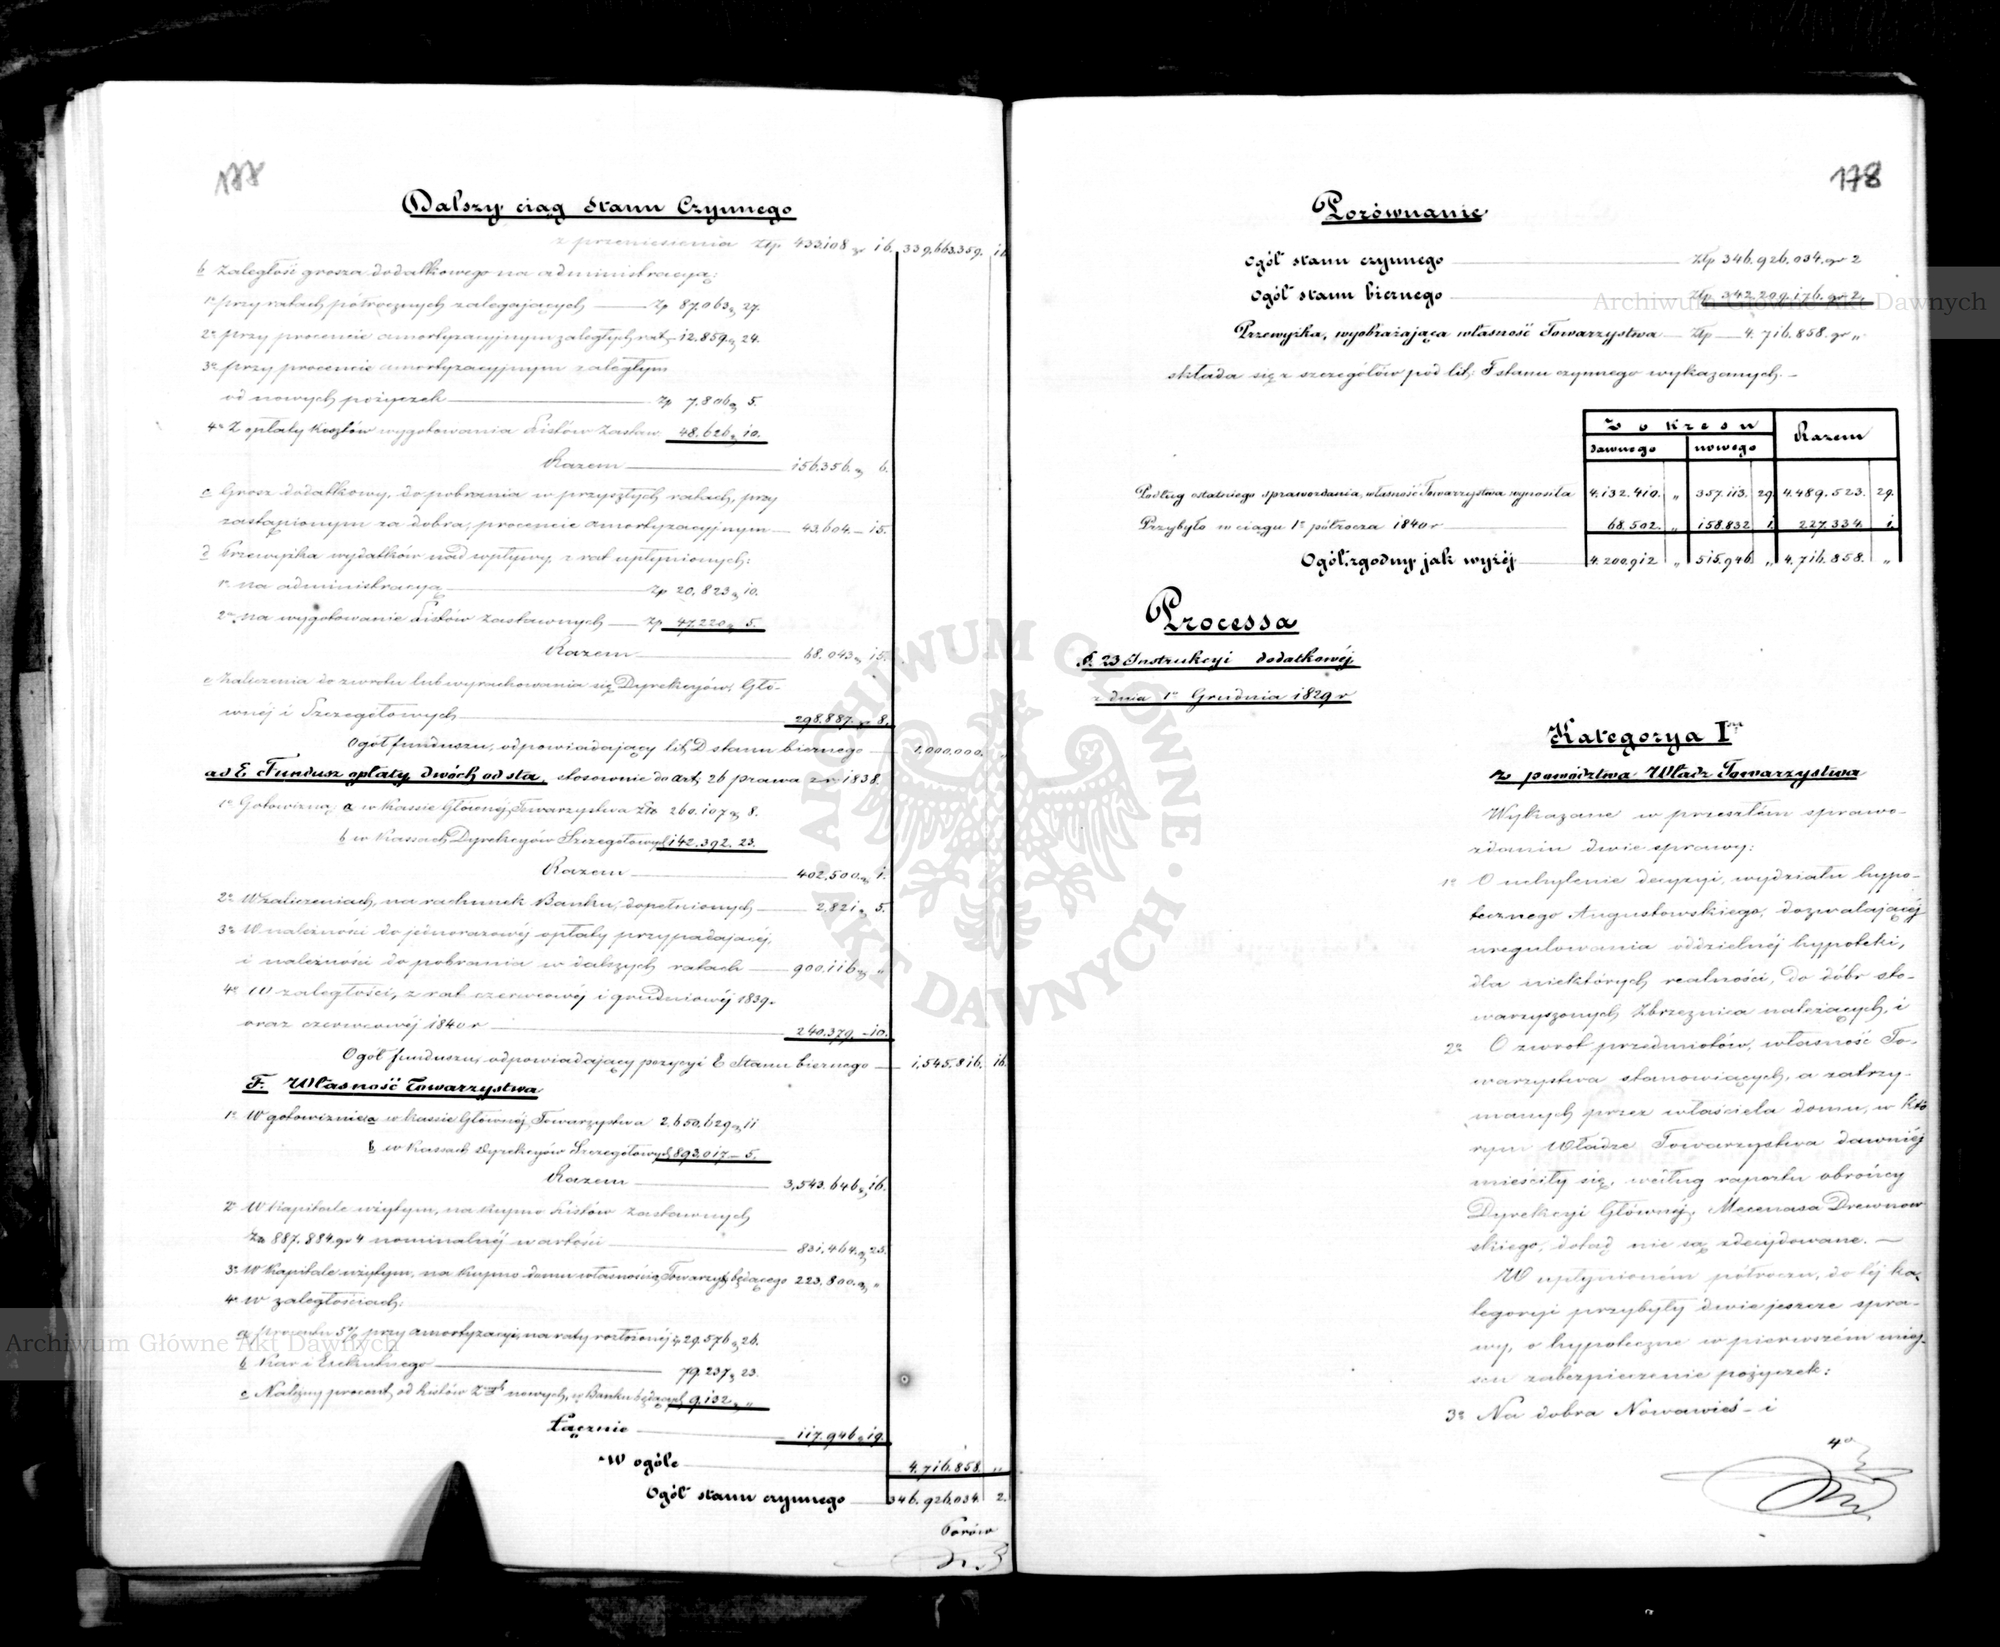 177
Dalszy ciąg Stanu Czynnego
z przeniesienia Złp 433.108 gr 16. 339,663.359. 16
b Zaległość grosza dodatkowego na administracyą:
1o przy ratach półrocznych zalegających Zp 87.063 g 27.
2o przy procencie amortyzacyjnym zaległych rat 12.859 g 24.
3o przy procencie amortyzacyjnym zaległym
od nowych pożyczek Zp 7.806 g 5.
4o Z opłaty kosztów wygotowania Listów Zastaw 48.626 g 10.
Razem 156.356 g 6.
c Grosz dodatkowy, do pobrania w przyszłych ratach, przy
zastąpionym za dobra, procencie amortyzacyjnym 43.604 – 15.
d Przewyżka wydatków nad wpływy, z rat upłynionych:
1o na administracyą Zp 20,823 g 10.
2o na wygotowanie Listów Zastawnych Zp 47.220 g 5.
Razem 68.043 g 15.
e Zaliczenia do zwrotu lub wyrachowania się Dyrekcyów, Głó-
wnéj i Szczegółowych 298.887. g 8.
Ogół funduszu, odpowiadający lit. D stanu biernego 1,000,000. „
ad E Fundusz opłaty dwóch od sta, stosownie do art. 26 prawa z r. 1838.
1o Gotowizną, a w Kassie Głównéj Towarzystwa Złp 260.107 g 8.
b w Kassach Dyrekcyów Szczegółowych 142.392. 23.
Razem 402,500 g 1.
2o W zaliczeniach, na rachunek Banku, dopełnionych 2,821 g 5.
3o W należności do jednorazowéj opłaty przypadającéj,
i należności do pobrania w dalszych ratach 900,116 g „
4o W zaległości, z rat czerwcowéj i grudniowéj 1839.
oraz czerwcowéj 1840 r 240.379. – 10.
Ogół funduszu, odpowiadający pozycyi E Stanu biernego 1,545.816. 16.
F. Własność Towarzystwa
1o W gotowiznie a w Kassie Głównéj Towarzystwa 2,650,629 g 11
b w Kassach Dyrekcyów Szczegółowych 893.017 – 5.
Razem 3,543.646 g 16.
2o W Kapitale użytym, na kupno Listów Zastawnych
Za 887.884 gr 4 nominalnéj wartości 831,464 g 25.
3o W Kapitale użytym, na kupno domu własnością Towarzys. będącego 223,800 g „
4o W zaległościach:
a Procentu 5% przy amortyzacyi, na raty rozłożonéj Zp 29.576 g 26.
b Kar i Exekutnego 79.237 g 23.
c Należny procent od Listów Zastch nowych, w Banku będących 9,132 g „
Łącznie 117.946 g 19.
W ogóle 4,716.858. „
Ogół stanu czynnego 346.926,034. 2.
Porów
178
Porównanie
Ogół stanu czynnego Złp 346.926,034. gr 2
Ogół stanu biernego Złp 342.209.176. gr 2
Przewyżka, wyobrażająca własność Towarzystwa Złp 4.716.858. gr „
składa się z szczegółów pod lit: F stanu czynnego wykazanych. –
Z okresu Razem
dawnego nowego
Podług ostatniego sprawozdania, własność Towarzystwa wynosiła 4.132.410. „ 357.113. 29. 4.489.523. 29.
Przybyło w ciągu 1o półrocza 1840 r 68.502. „ 158.832 1. 227.334. 1.
Ogół zgodny jak wyżéj 4.200.912 „ 515.946 „ 4.716.858. „
Processa
§. 23 Instrukcyi dodatkowéj
z dnia 1o Grudnia 1829 r
Kategorya Isza
z powództwa Władz Towarzystwa
Wykazane w przeszłém sprawo-
zdaniu dwie sprawy:
1o O uchylenie decyzyi, wydziału hypo-
tecznego Augustowskiego, dozwalającéj
uregulowania oddzielnéj hypoteki,
dla niektórych realności, do dóbr sto-
warzyszonych Zbrzeznica należących, i
2o O zwrot przedmiotów, własność To-
warzystwa stanowiących, a zatrzy-
manych przez właściciela domu, w któ
rym Władze Towarzystwa dawniéj
mieściły się, według raportu obrońcy
Dyrekcyi Głównéj, Mecenasa Drewnow
skiego, dotąd nie są zdecydowane. –
W upłynioném półroczu, do téj ka-
tegoryi przybyły dwie jeszcze spra-
wy, o hypoteczne w pierwszém miej-
scu zabezpieczenie pożyczek:
3o Na dobra Nowawieś – i
4o
ARCHIWUM GŁÓWNE AKT DAWNYCH
Archiwum Główne Akt Dawnych
Archiwum Główne Akt Dawnych